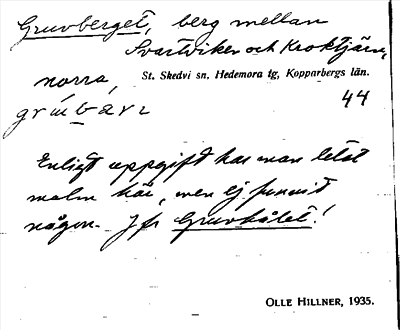 Gruvberget, berg mellan
Svartviken och Kroktjärn,
norra, St. Skedvi sn, Hedemora tg, Kopparbergs län.
44
Enligt uppgift har man letat
malm här, men ej funnit
någon. Jfr Gruvhålet!
OLLE HILLNER, 1935.